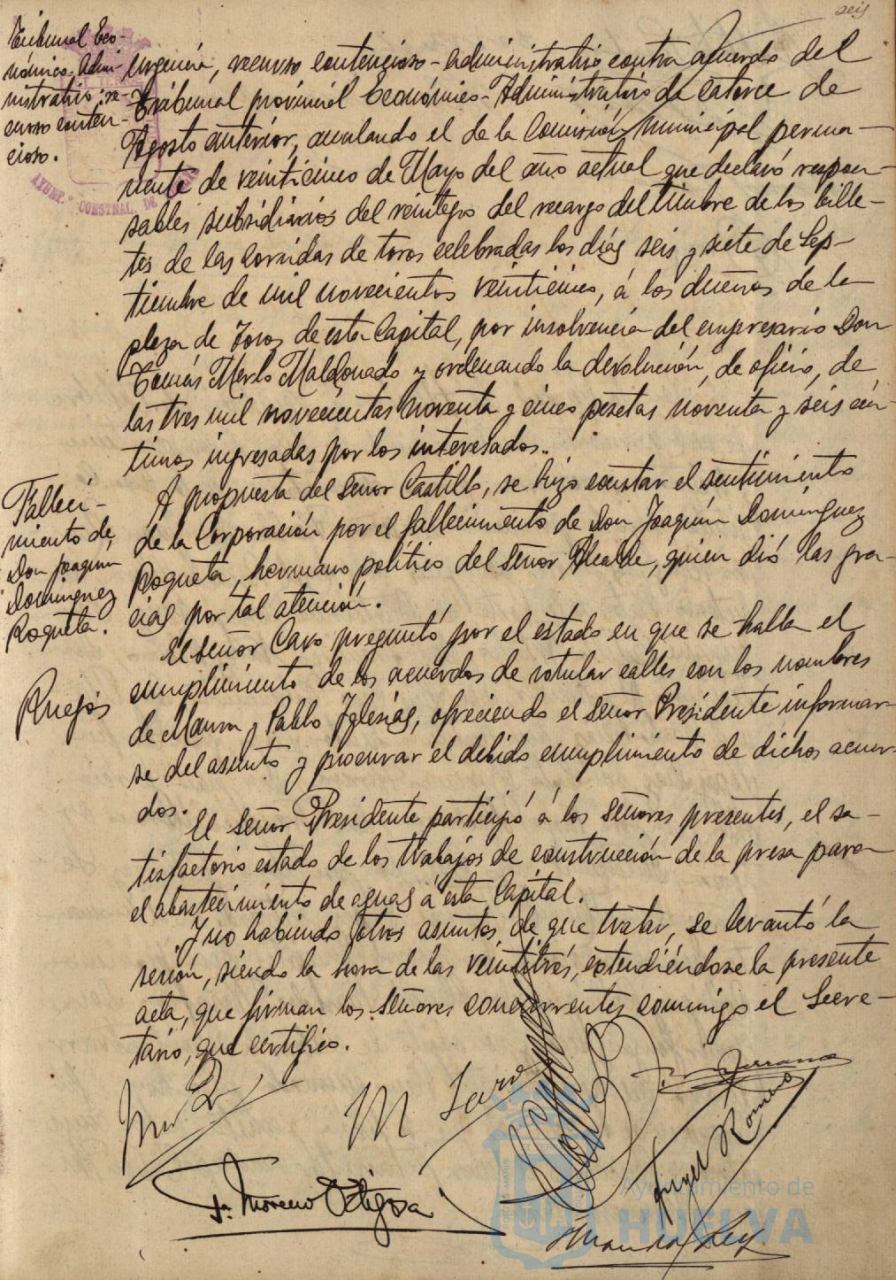 seis
Tribunal Eco-
nómico-Admi-
nistrativo; re-
curso conten-
cioso.
urgencia, recurso contencioso-administrativo contra acuerdo del
Tribunal provincial Económico-Administrativo de catorce de
Agosto anterior, anulando el de la Comisión Municipal perma-
nente de veinticinco de Mayo del año actual que declaró respon-
sables subsidiarios del reintegro del recargo del timbre de los bille-
tes de las corridas de toros celebradas los días seis y siete de Sep-
tiembre de mil novecientos veinticinco, á los dueños de la
plaza de Toros de esta Capital, por insolvencia del empresario Don
Tomás Merlo Maldonado y ordenando la devolución, de oficio, de
las tres mil novecientas noventa y cinco pesetas noventa y seis cén-
timos ingresadas por los interesados.
Falleci-
miento de
Don Joaquín
Domínguez
Roqueta.
A propuesta del Señor Castillo, se hizo constar el sentimiento
de la Corporación por el fallecimiento de Don Joaquín Domínguez
Roqueta, hermano político del Señor Alcalde, quien dió las gra-
cias por tal atención.
Ruegos
El Señor Caro preguntó por el estado en que se halla el
cumplimiento de los acuerdos de rotular calles con los nombres
de Maura y Pablo Iglesias, ofreciendo el Señor Presidente informar-
se del asunto y procurar el debido cumplimiento de dichos acuer-
dos.
El Señor Presidente participó á los Señores presentes, el sa-
tisfactorio estado de los trabajos de construcción de la presa para
el abastecimiento de aguas á esta Capital.
Y no habiendo otros asuntos de que tratar, se levantó la
sesión, siendo la hora de las veintitrés, extendiéndose la presente
acta, que firman los Señores concurrentes conmigo el Secre-
tario, que certifico.
F. Moreno Ortigosa
Angel Romero
Ayuntamiento de
HUELVA